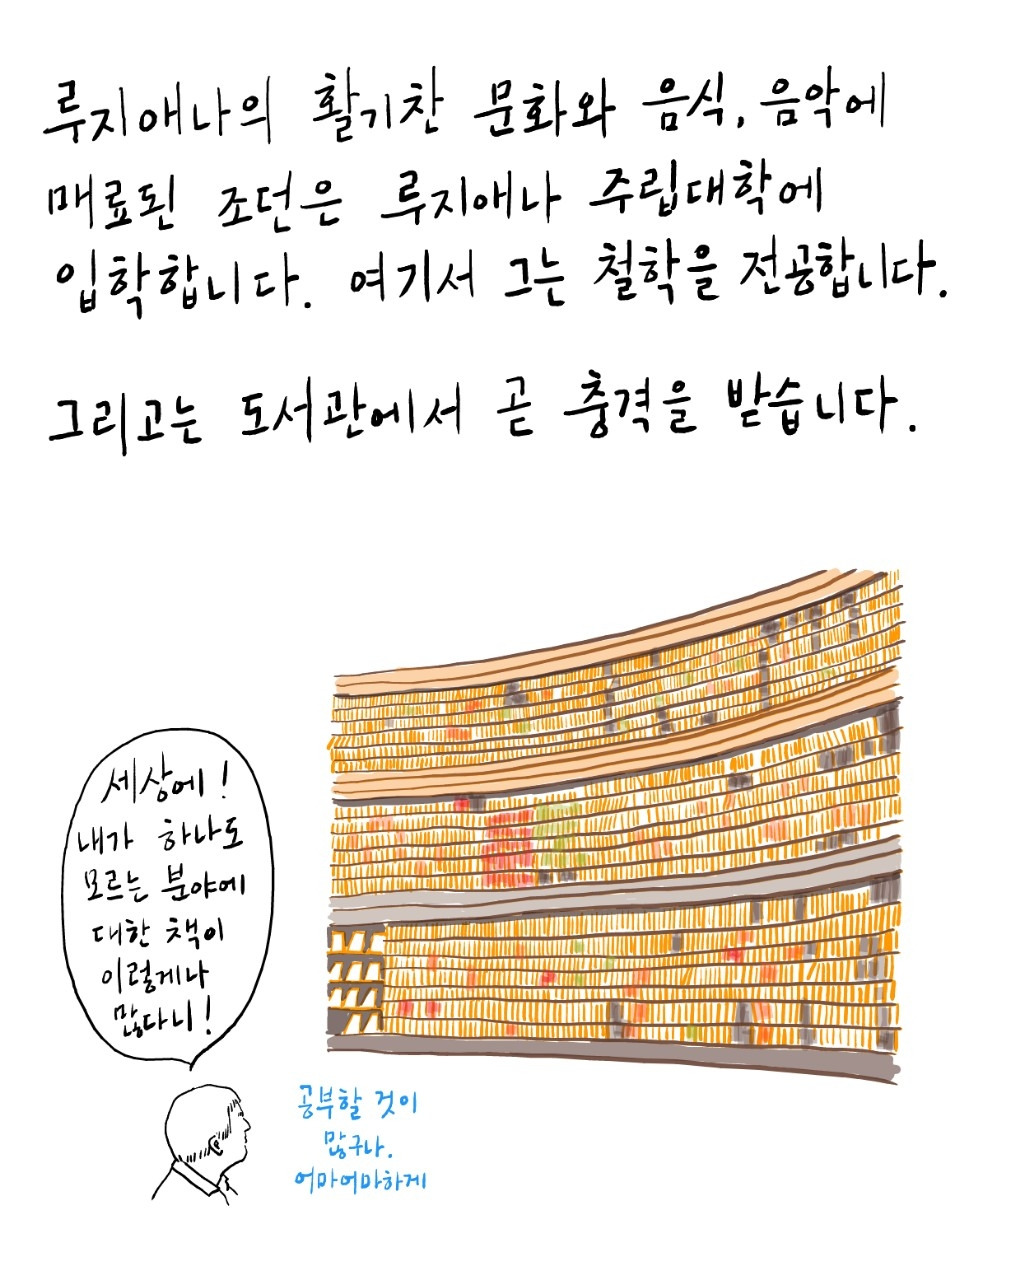 루지애나의 활기찬 문화와 음식, 음악에
매료된 조던은 루지애나 주립대학에
입학합니다. 여기서 그는 철학을 전공합니다.
그리고는 도서관에서 곧 충격을 받습니다.
세상에!
내가 하나도
모르는 분야에
대한 책이
이렇게나
많다니!
공부할 것이
많구나.
어마어마하게